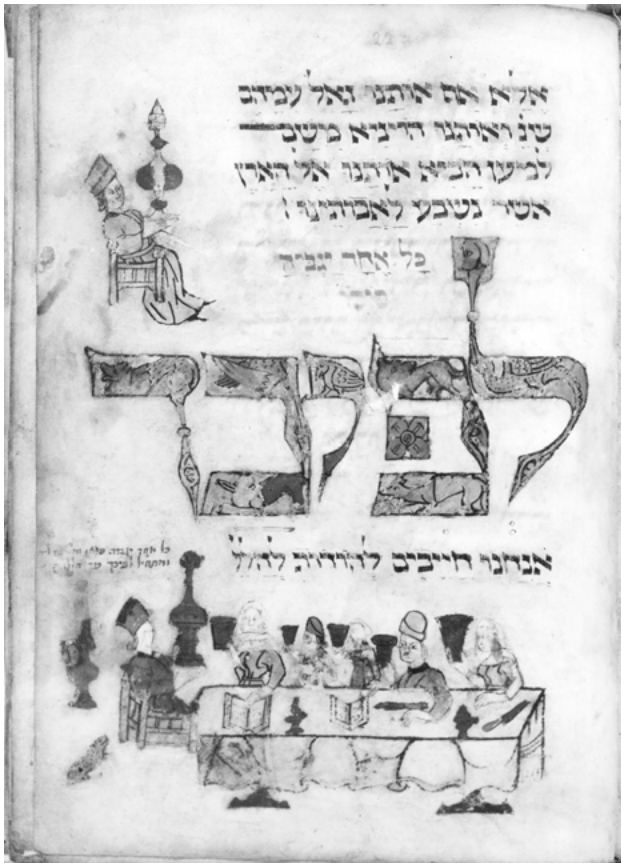 אלא אף אותנו גאל עמהם
שנ' ואותנו הוציא משם
למען הביא אותנו אל הארץ
אשר נשבע לאבותינו :
כל אחד יגביה
כוסו
לפיכך
אנחנו חייבים להודות להלל
כל אחד יגביה
ויתחיל לפיכך עד